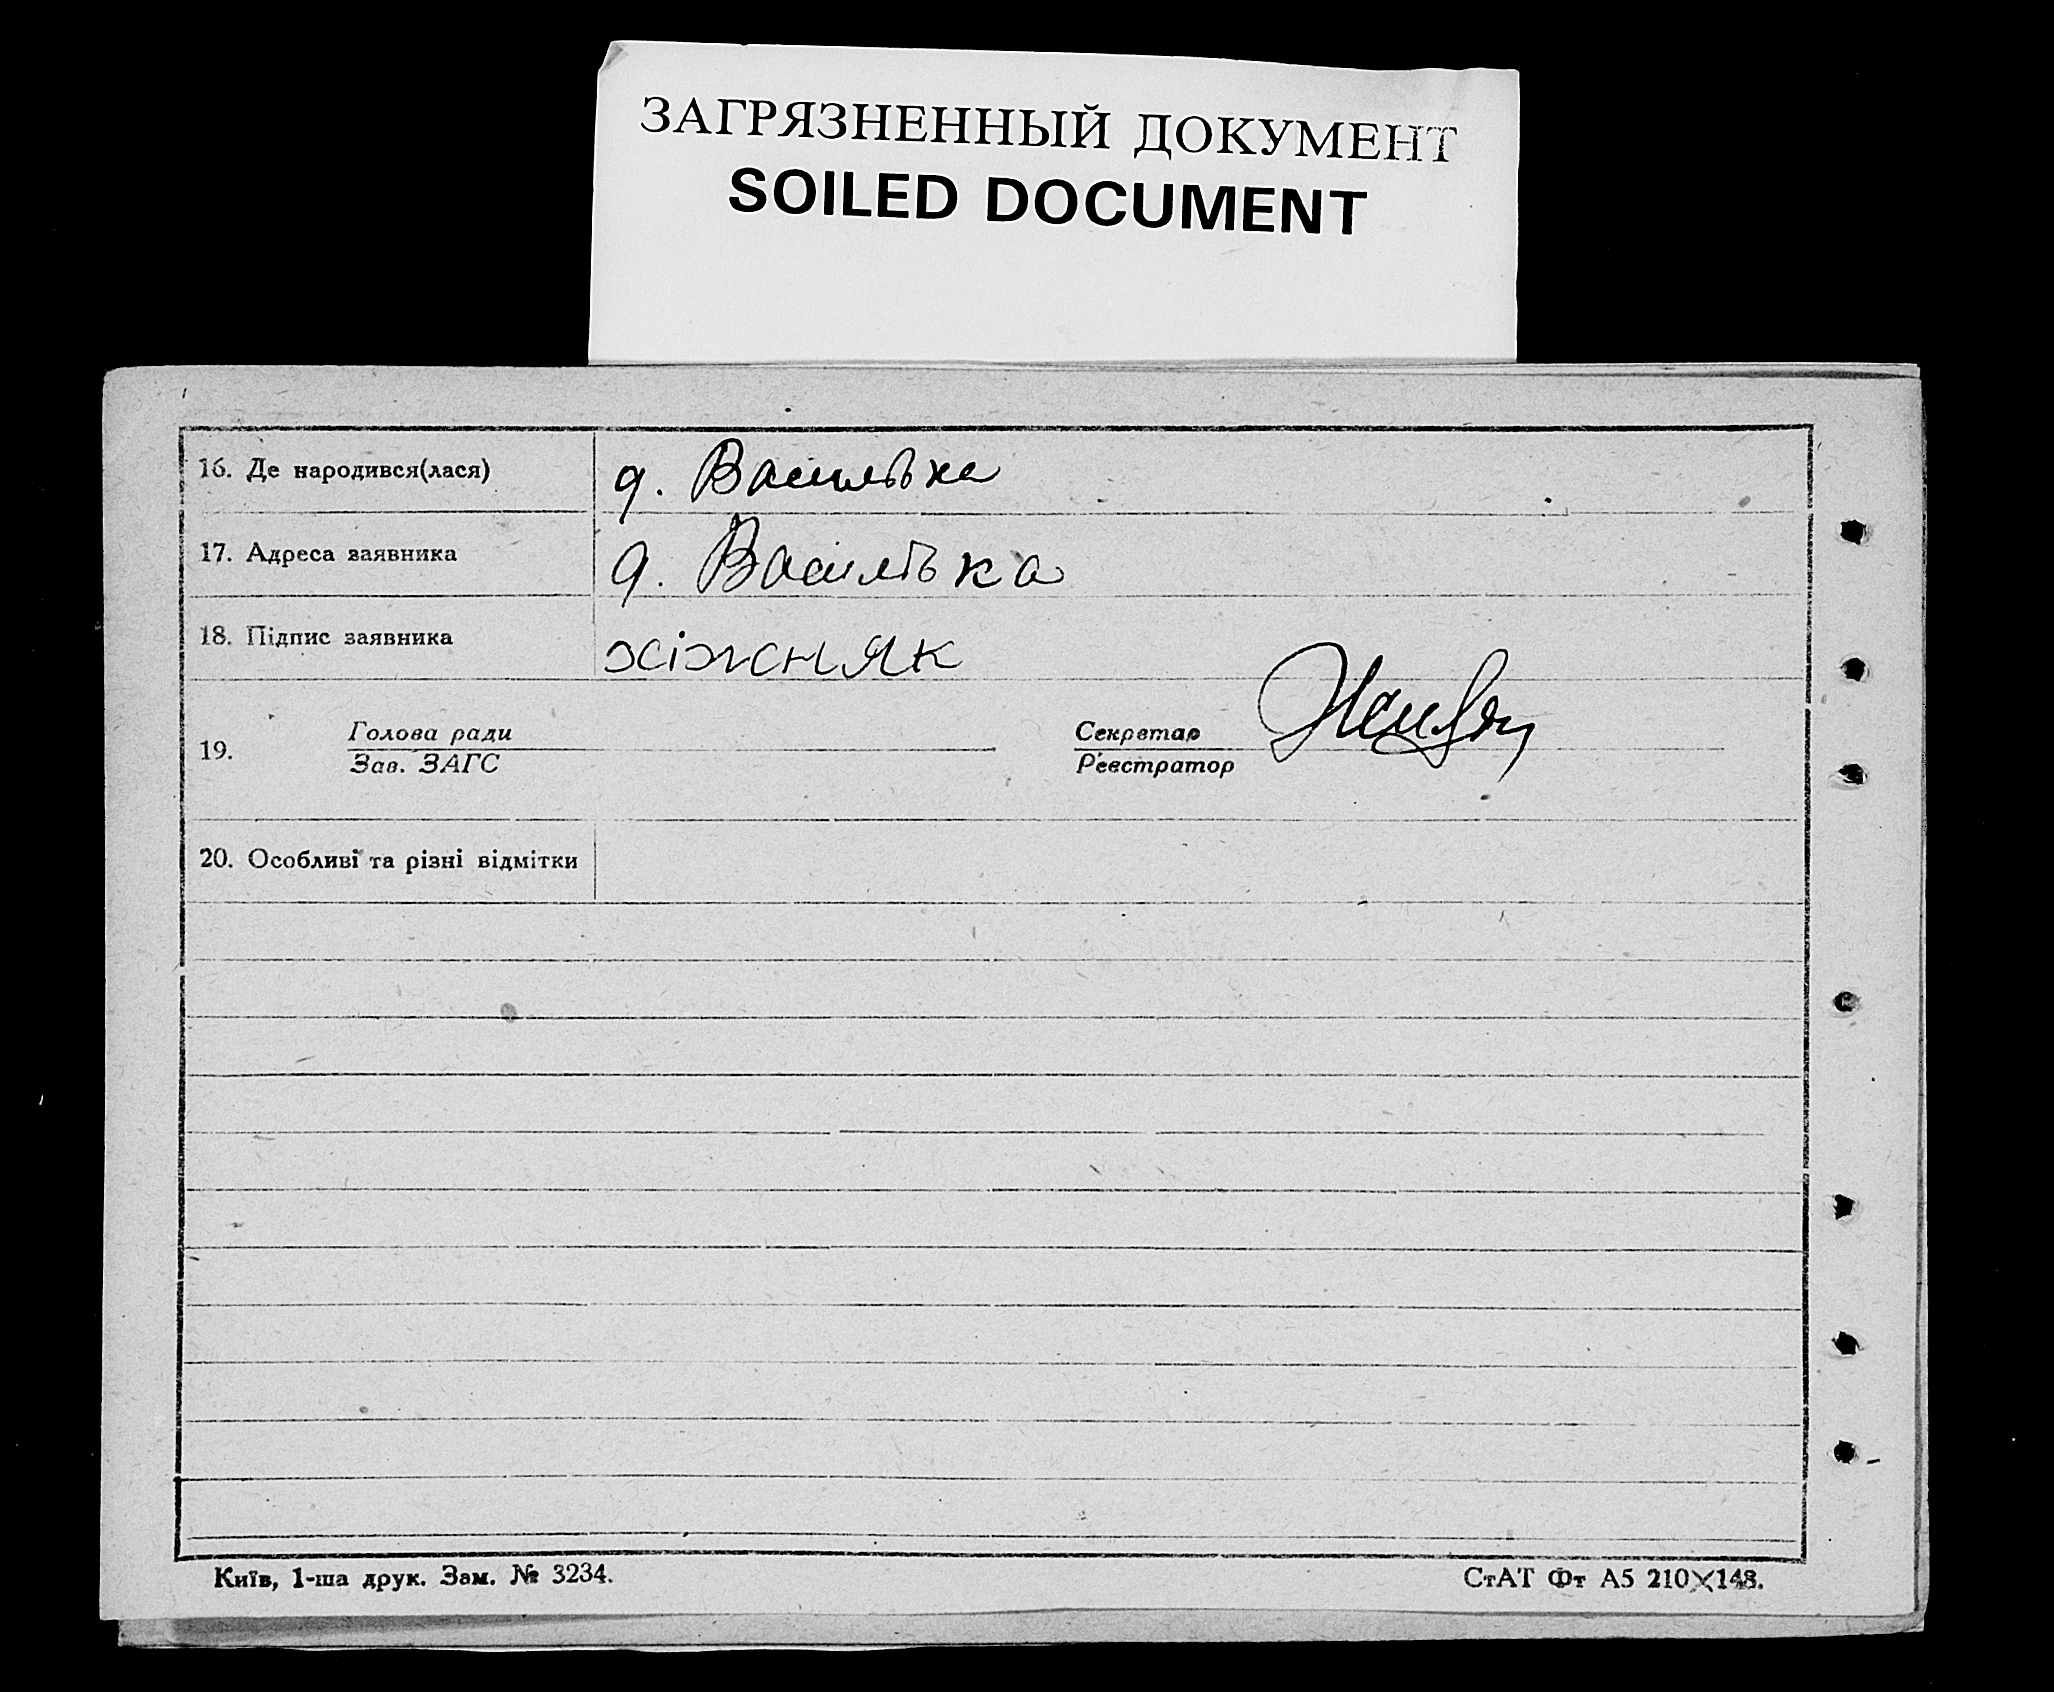 ЗАГРЯЗНЕННЫЙ ДОКУМЕНТ
SOILED DOCUMENT
16. Де народився(лася) д. Василівка
17. Адреса заявника д. Василівка
18. Підпис заявника хіжняк
19. Голова ради Секретар
Зав. ЗАГС Реєстратор
20. Особливі та різні відмітки
Київ, 1-ша друк. Зам. № 3234. СтАТ Фт А5 210×148.